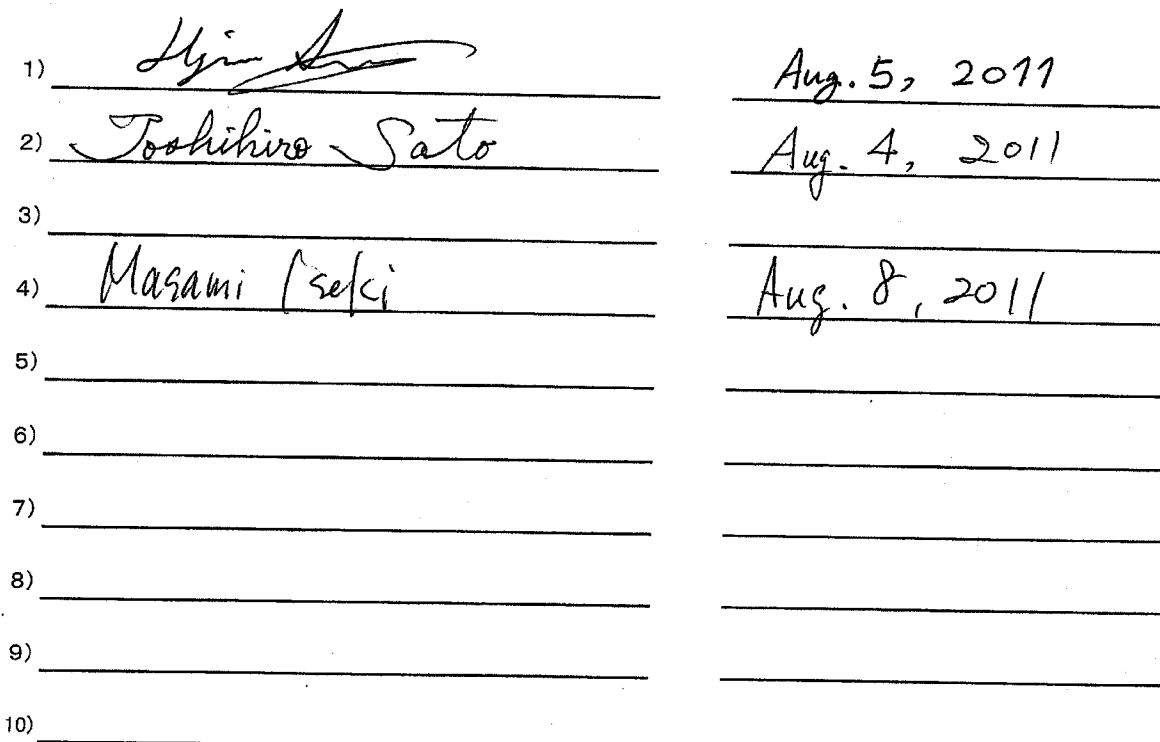 1) Aug. 5, 2011
2) Toshihiro Sato Aug. 4, 2011
3)
4) Masami Iseki Aug. 8, 2011
5)
6)
7)
8)
9)
10)